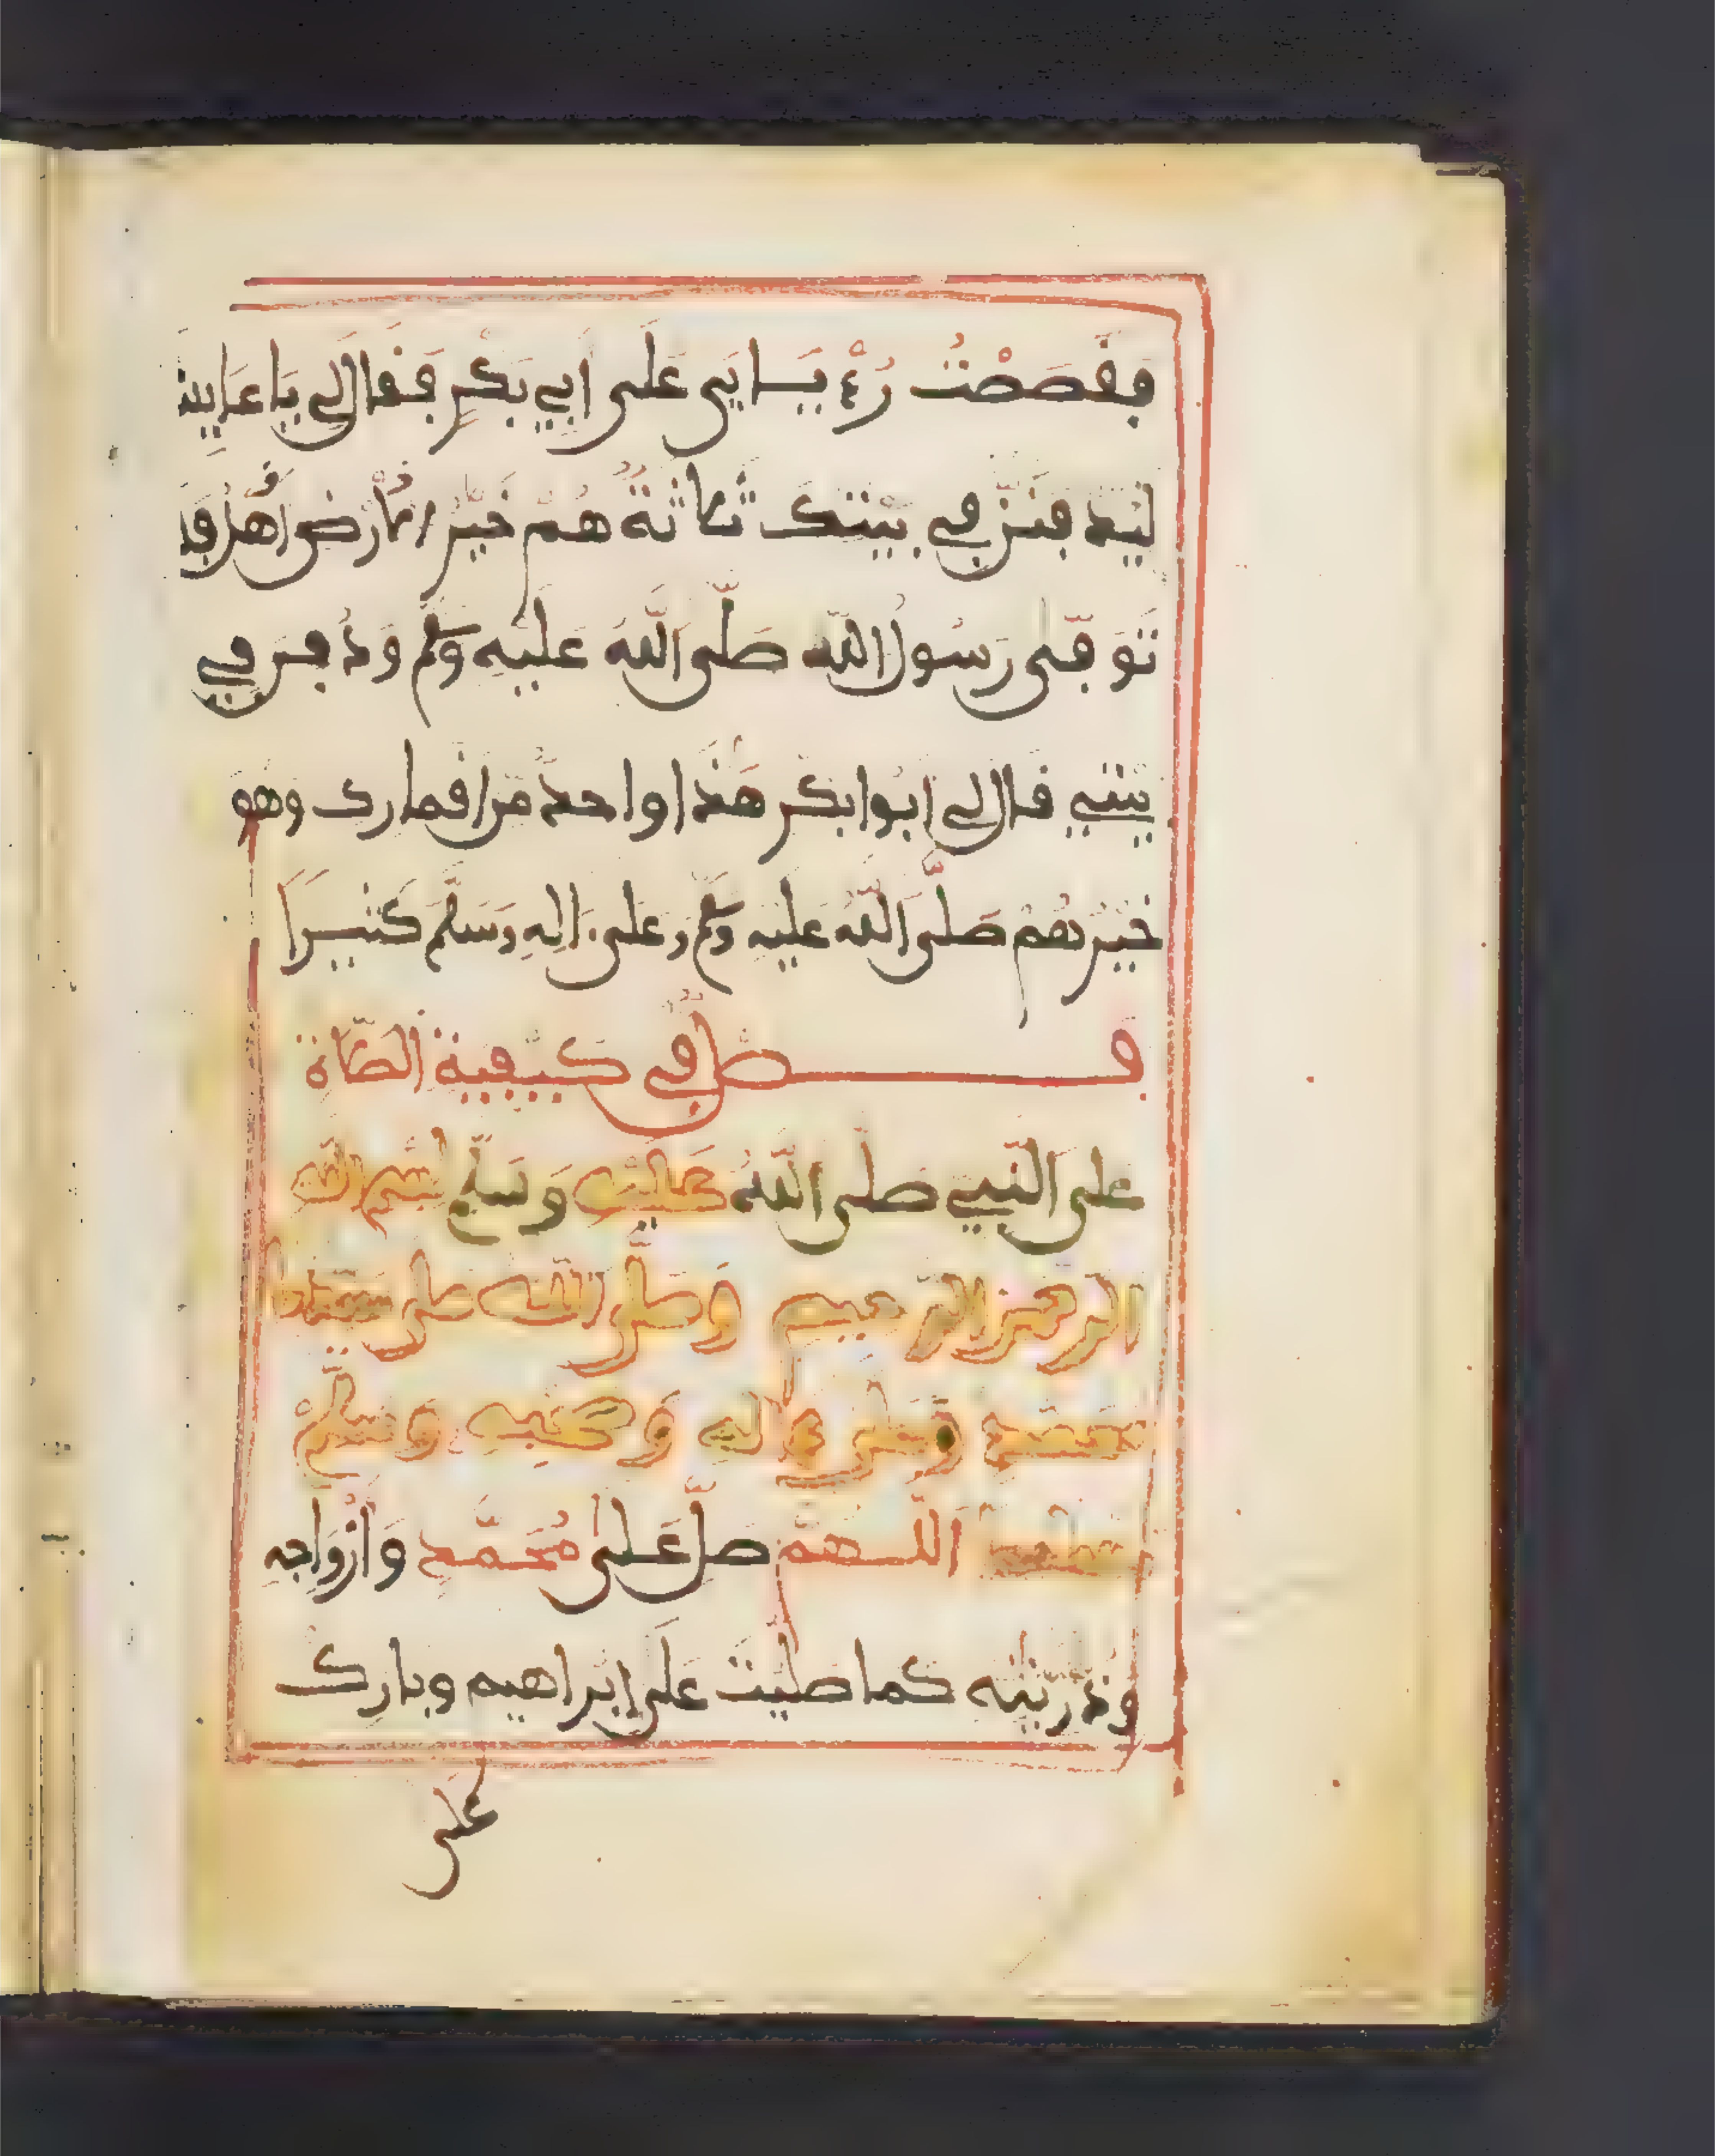 فقصصت رءيايي على ابي بكر فقال لي يا عايشة
ليدفنن في بيتك ثلاثة هم خير الارض اهل فلما
توفى رسول الله صلى الله عليه وسلم ودفن في
بيتي قال لي ابوابكر هذا واحد من اقمارك وهو
خيرهم صلى الله عليه وسلم وعلى اله وسلم كثيرا
فصل في كيفية الصلاة
على النبي صلى الله عليه وسلم بسم الله
الرحمن الرحيم وصلى الله على سيدنا
محمد وعلى ءاله وصحبه وسلم
اللهم صل على محمد وازواجه
وذريته كما صليت على ابراهيم وبارك
على